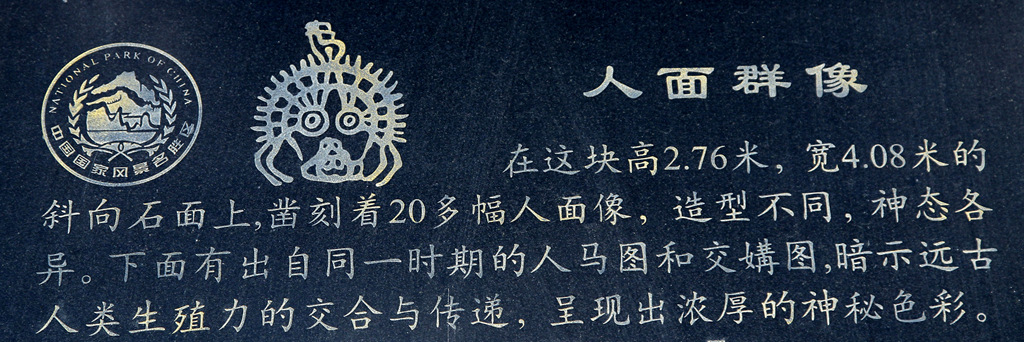 NATIONAL PARK OF CHINA
中国国家风景名胜区
人面群像
在这块高2.76米，宽4.08米的
斜向石面上,凿刻着20多幅人面像，造型不同，神态各
异。下面有出自同一时期的人马图和交媾图,暗示远古
人类生殖力的交合与传递，呈现出浓厚的神秘色彩。